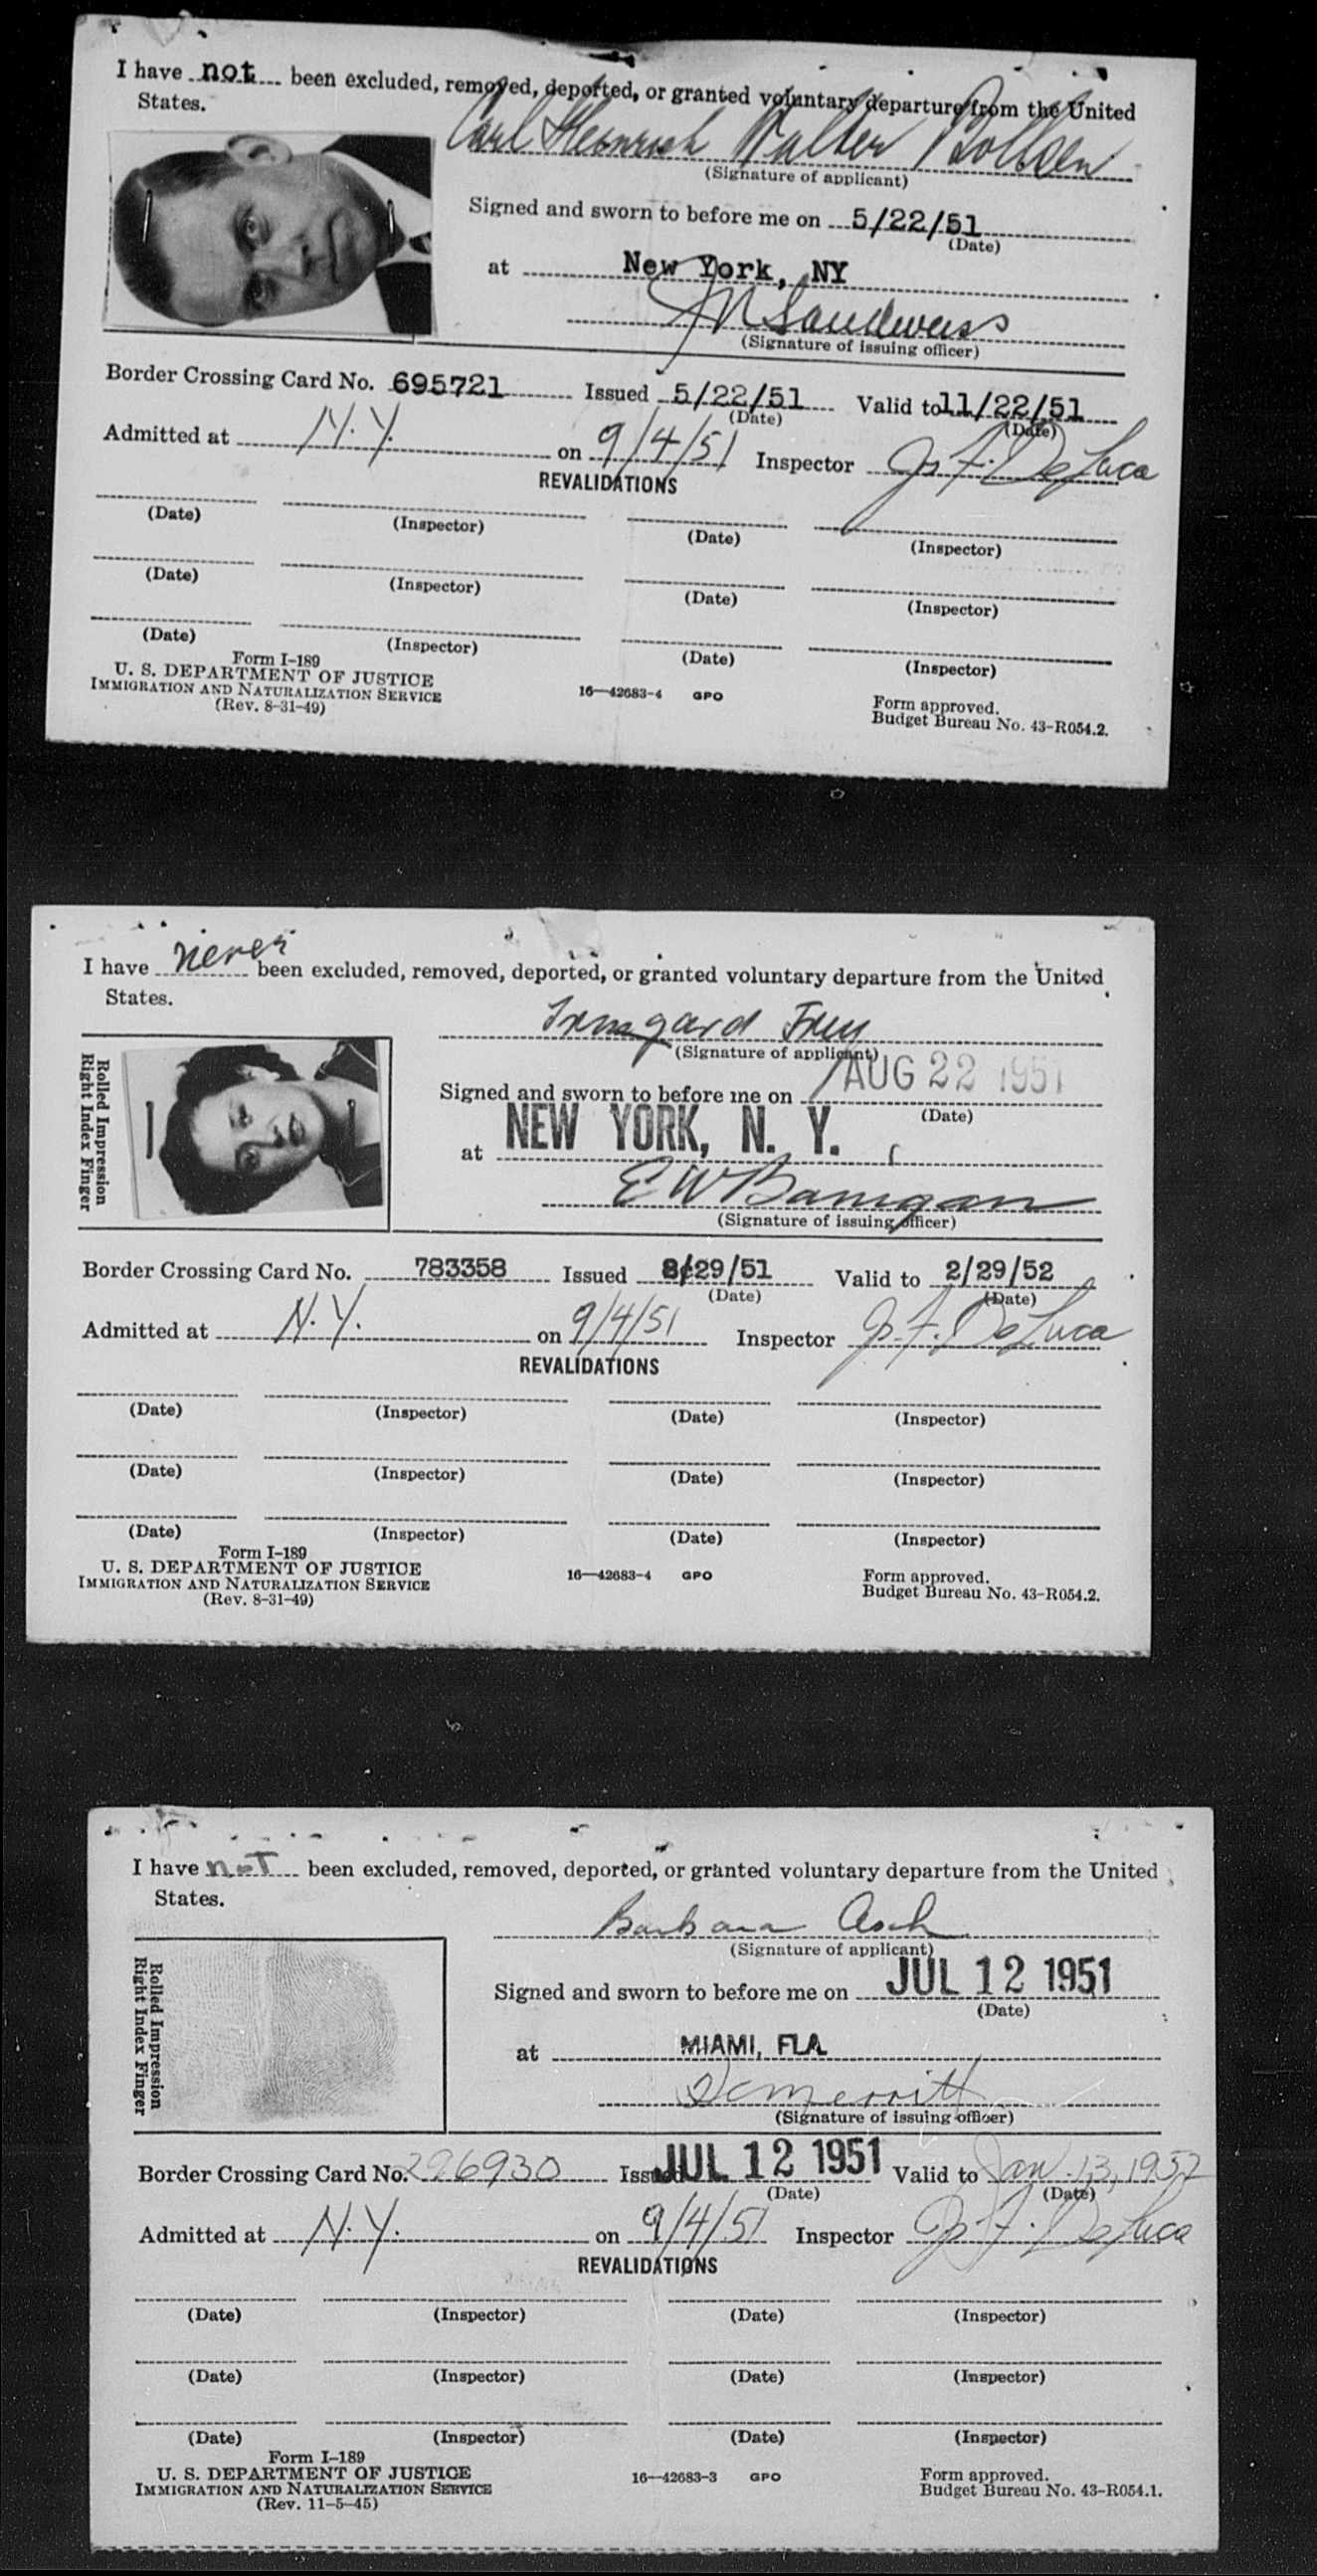 I have not been excluded, removed, deported, or granted voluntary departure from the United
States.
Carl Heinrich Walter
(Signature of applicant)
Signed and sworn to before me on 5/22/51
(Date)
at New York, NY
(Signature of issuing officer)
Border Crossing Card No. 695721 Issued 5/22/51 Valid to 11/22/51
(Date) (Date)
Admitted at N.Y. on 9/4/51 Inspector Js F. DeLuca
REVALIDATIONS
(Date) (Inspector) (Date) (Inspector)
(Date) (Inspector) (Date) (Inspector)
(Date) (Inspector) (Date) (Inspector)
Form I-189
U. S. DEPARTMENT OF JUSTICE
IMMIGRATION AND NATURALIZATION SERVICE
(Rev. 8-31-49)
16—42683-4 GPO
Form approved.
Budget Bureau No. 43-R054.2.
I have never been excluded, removed, deported, or granted voluntary departure from the United
States.
Irmgard Frey
(Signature of applicant)
Rolled Impression
Right Index Finger
Signed and sworn to before me on AUG 22 1951
(Date)
at NEW YORK, N. Y.
E W Banigan
(Signature of issuing officer)
Border Crossing Card No. 783358 Issued 8/29/51 Valid to 2/29/52
(Date) (Date)
Admitted at N.Y. on 9/4/51 Inspector Js F. DeLuca
REVALIDATIONS
(Date) (Inspector) (Date) (Inspector)
(Date) (Inspector) (Date) (Inspector)
(Date) (Inspector) (Date) (Inspector)
Form I-189
U. S. DEPARTMENT OF JUSTICE
IMMIGRATION AND NATURALIZATION SERVICE
(Rev. 8-31-49)
16—42683-4 GPO
Form approved.
Budget Bureau No. 43-R054.2.
I have not been excluded, removed, deported, or granted voluntary departure from the United
States.
Barbara Asch
(Signature of applicant)
Rolled Impression
Right Index Finger
Signed and sworn to before me on JUL 12 1951
(Date)
at MIAMI, FLA
Merritt
(Signature of issuing officer)
Border Crossing Card No. 296930 Issued JUL 12 1951 Valid to Jan. 13, 1952
(Date) (Date)
Admitted at N.Y. on 9/4/51 Inspector Js F. DeLuca
REVALIDATIONS
(Date) (Inspector) (Date) (Inspector)
(Date) (Inspector) (Date) (Inspector)
(Date) (Inspector) (Date) (Inspector)
Form I-189
U. S. DEPARTMENT OF JUSTICE
IMMIGRATION AND NATURALIZATION SERVICE
(Rev. 11-5-45)
16—42683-3 GPO
Form approved.
Budget Bureau No. 43-R054.1.